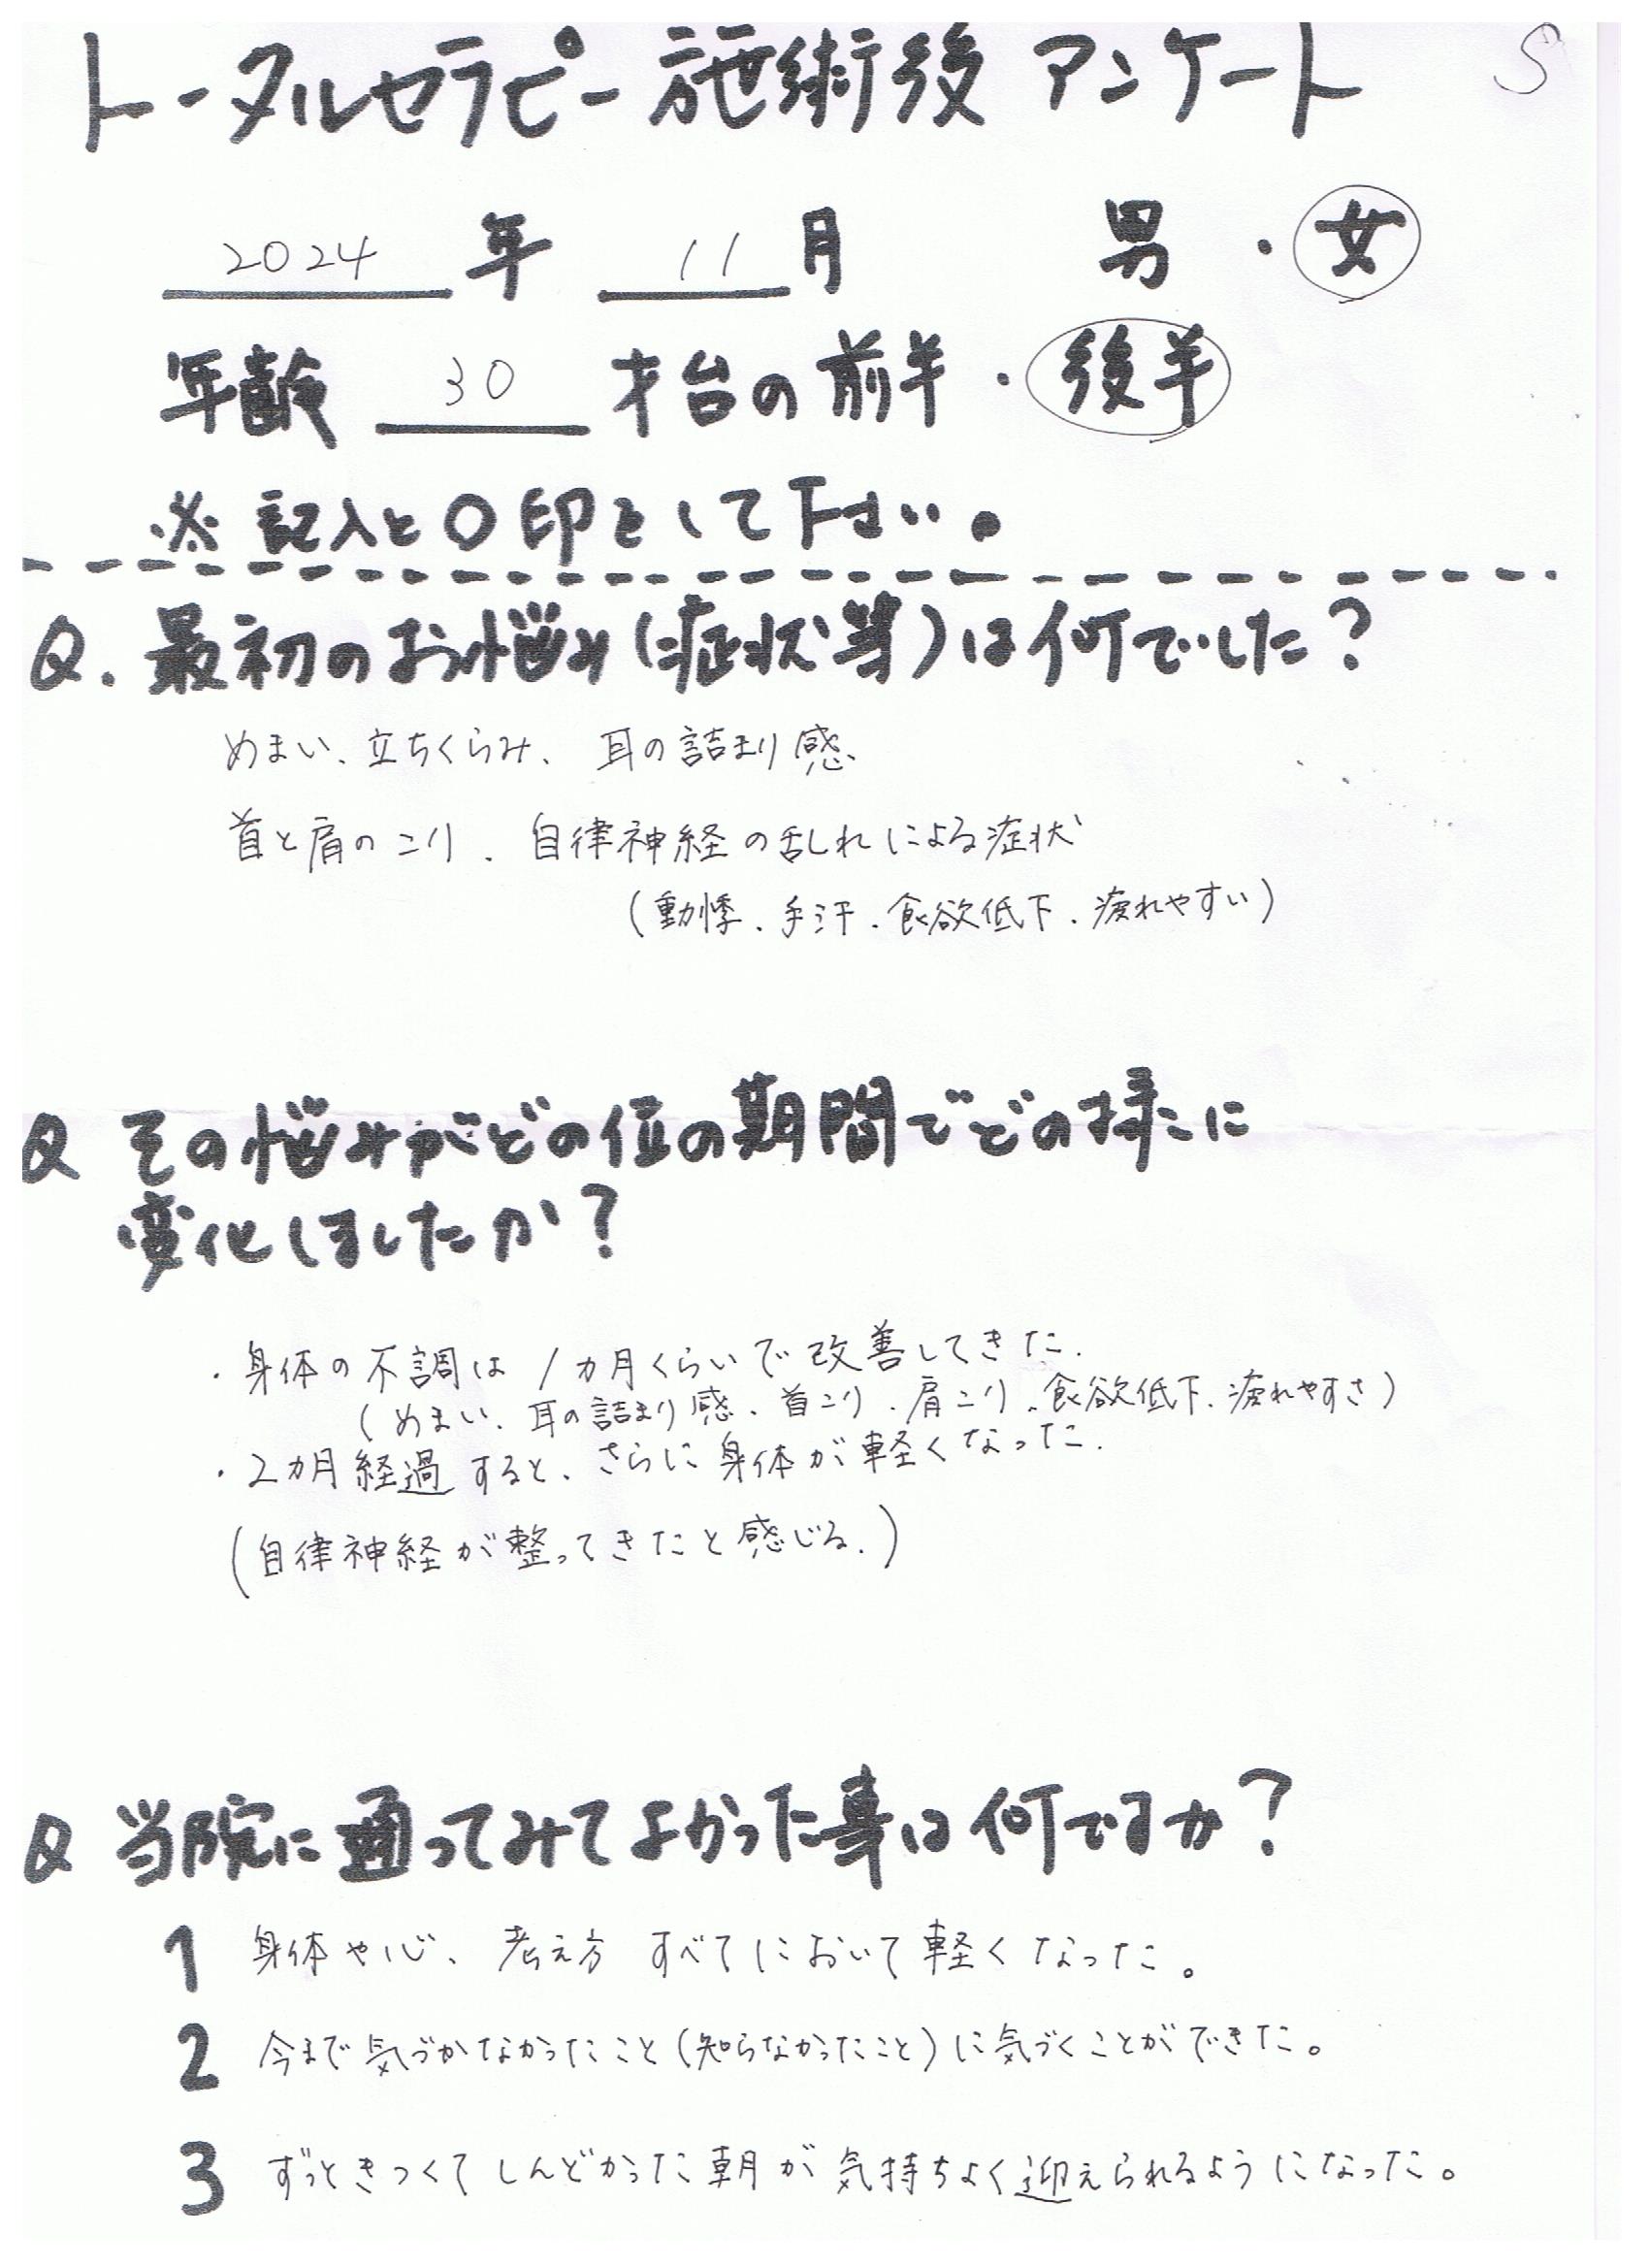 トータルセラピー施術後 アンケート S
2024 年 11 月 男 ・ 女
年齢 30 才台の前半 ・ 後半
※ 記入と○印をして下さい。
Q. 最初のお悩み(症状等)は何でした?
めまい、立ちくらみ、耳の詰まり感、
首と肩のこり、自律神経の乱れによる症状
(動悸、手汗、食欲低下、疲れやすい)
Q その悩みがどの位の期間でどの様に
変化しましたか?
・身体の不調は1カ月くらいで改善してきた.
(めまい、耳の詰まり感、首こり、肩こり、食欲低下、疲れやすさ)
・2カ月経過すると、さらに身体が軽くなった.
(自律神経が整ってきたと感じる.)
Q 当院に通ってみてよかった事は何ですか?
1 身体や心、考え方 すべてにおいて軽くなった。
2 今まで気づかなかったこと(知らなかったこと)に気づくことができた。
3 ずっときつくてしんどかった朝が気持ちよく迎えられるようになった。